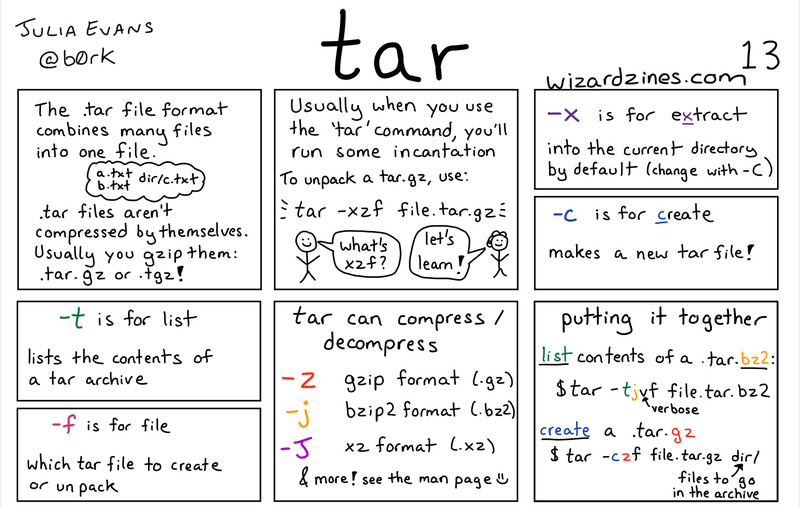 JULIA EVANS
@b0rk
tar
13
wizardzines.com
The .tar file format
combines many files
into one file.
a.txt dir/c.txt
b.txt
.tar files aren't
compressed by themselves.
Usually you gzip them:
.tar.gz or .tgz!
Usually when you use
the 'tar' command, you'll
run some incantation
To unpack a tar.gz, use:
tar -xzf file.tar.gz
what's
xzf?
let's
learn!
-x is for extract
into the current directory
by default (change with -C)
-c is for create
makes a new tar file!
-t is for list
lists the contents of
a tar archive
-f is for file
which tar file to create
or unpack
tar can compress /
decompress
-z gzip format (.gz)
-j bzip2 format (.bz2)
-J xz format (.xz)
& more! see the man page
putting it together
list contents of a .tar.bz2:
$ tar -tjvf file.tar.bz2
verbose
create a .tar.gz
$ tar -czf file.tar.gz dir/
files to go
in the archive